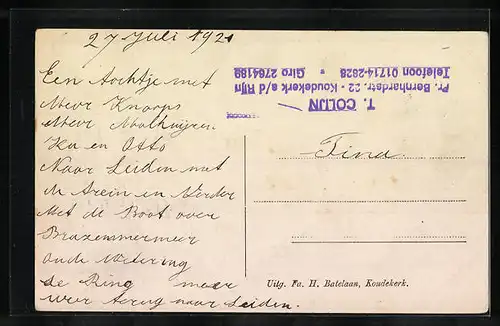 27 Juli 1921
Een Tochtje met
Mevr Knaops
Mevr
Ku en Otto
Naar Leiden met
de Trein en Verder
Met de Boot over
Brazemmermeer
oude Wetering
de Ring meer
weer terug naar Leiden.
T. COLIJN
Pr. Bernhardstr. 22 - Koudekerk a/d Rijn
Telefoon 01714-2828 * Giro 2764189
Tina
Uitg. Fa. H. Batelaan, Koudekerk.